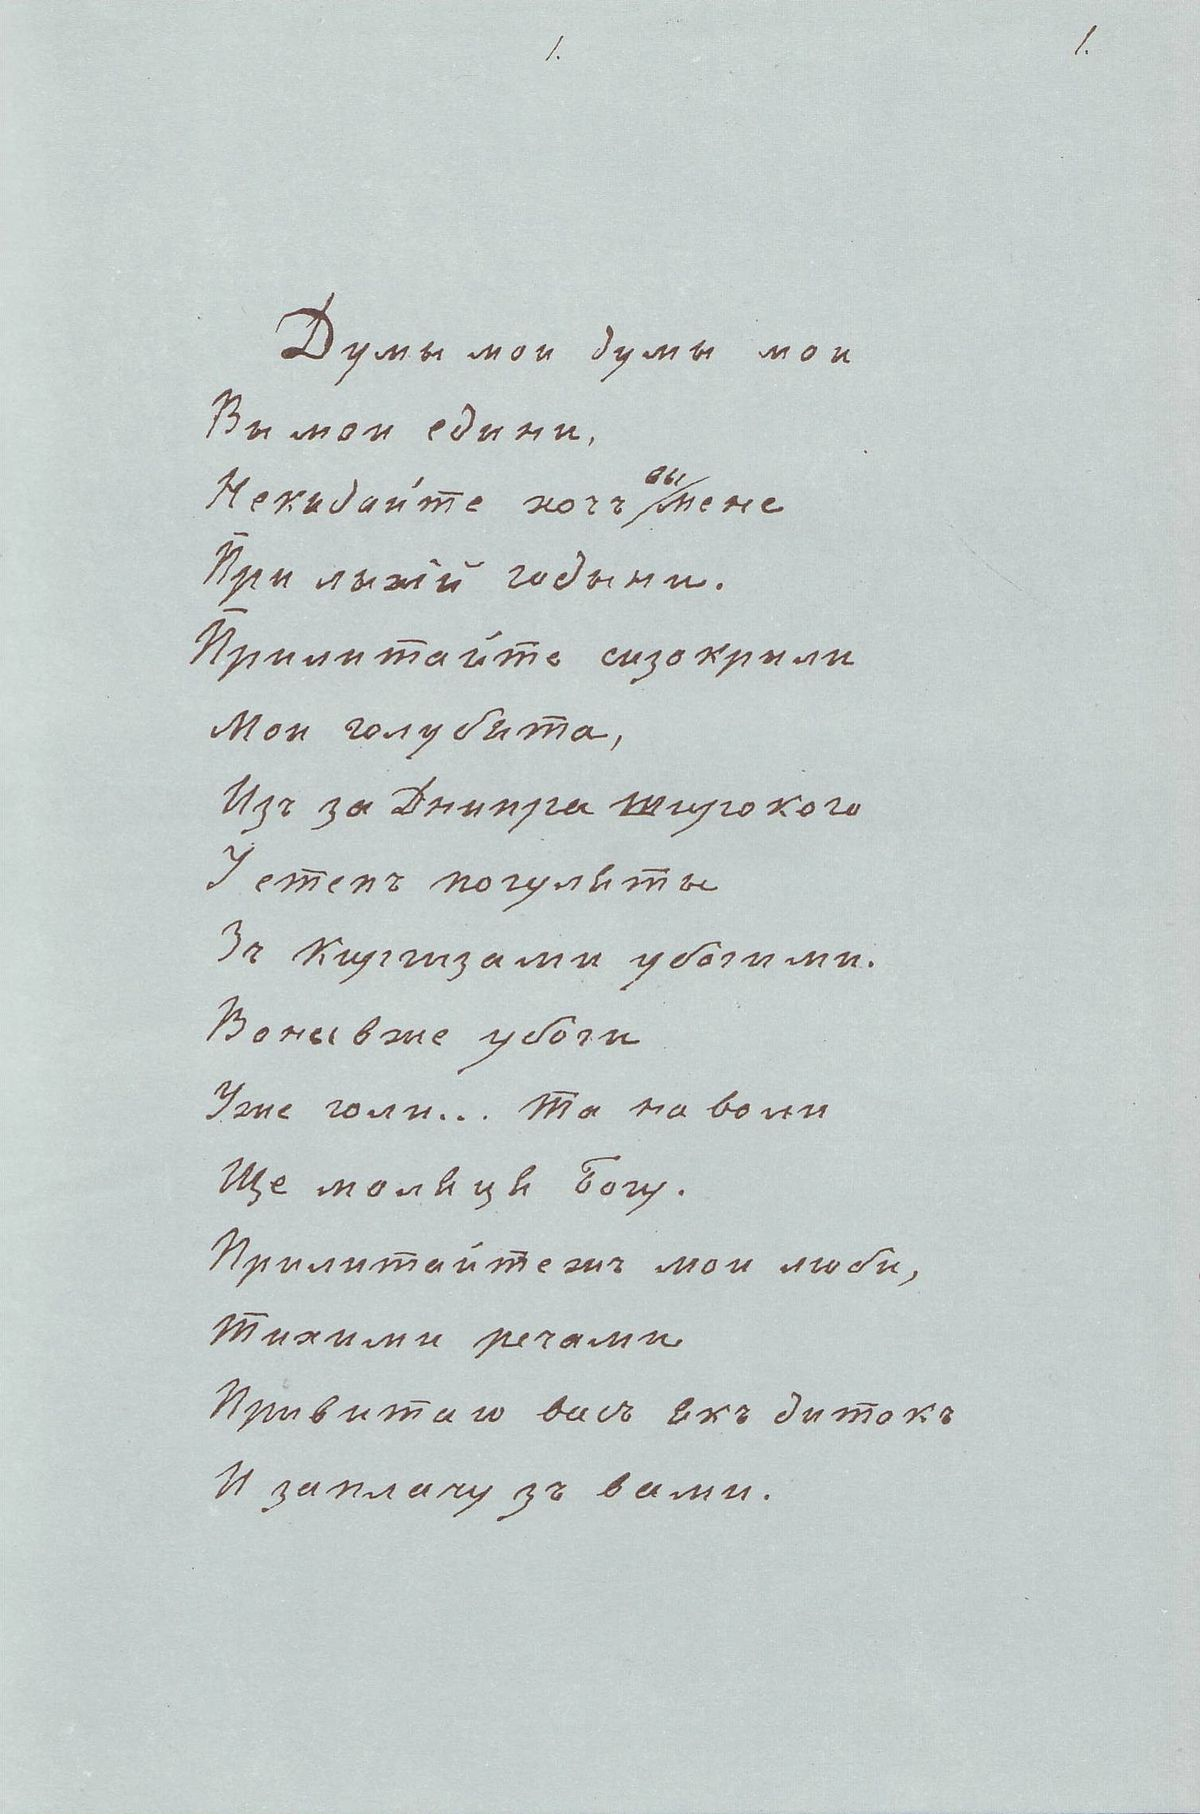 1. 1.
Думы мои думы мои
Вы мои едини,
Некидайте хочъ вы мене
При лыхій годыни.
Прилитайте сизокрыли
Мои голубята,
Изъ за Днипра широкого
У степъ погуляты
Зъ Киргизами убогими.
Вонывже убоги
Уже голи... та на воли
Ще моляця Богу.
Прилитайтежъ мои люби,
Тихими речами
Привитаю васъ якъ дитокъ
И заплачу зъ вами.